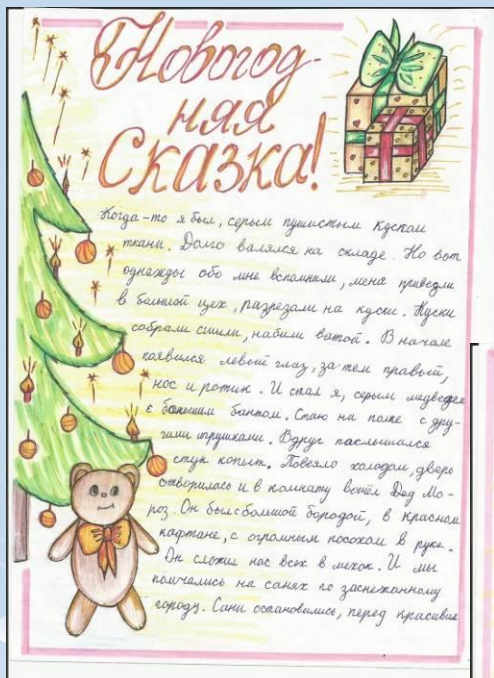 Новогод-
няя
Сказка!
Когда-то я был, серым пушистым куском
ткани. Долго валялся на складе. Но вот
однажды обо мне вспомнили, меня привезли
в большой цех, разрезали на куски. Куски
собрали сшили, набили ватой. В начале
появился левый глаз, за тем правый,
нос и ротик. И стал я, серым медведем
с большим бантом. Стою на полке с дру-
гими игрушками. Вдруг послышался
стук копыт. Повеяло холодом, дверь
отворилась и в комнату вошёл Дед Мо-
роз. Он был с большой бородой, в красном
кафтане, с огромным посохом в руке.
Он сложил нас всех в мешок. И мы
помчались на санях по заснеженному
городу. Сани остановились, перед красивым